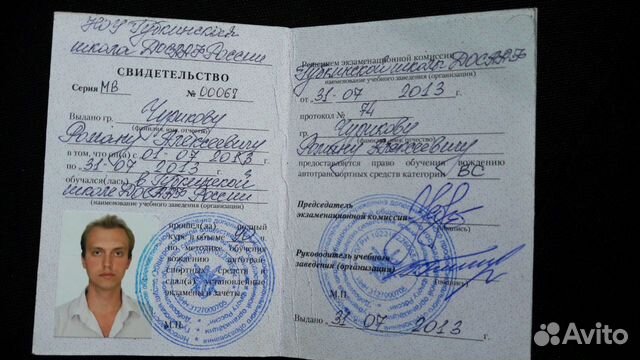 НОУ Губкинская
школа ДОСААФ России
СВИДЕТЕЛЬСТВО
Серия МВ № 000067
Выдано гр. Чурикову
(фамилия, имя, отчество)
Роману Алексеевичу
в том, что он(а) с 01 07 2013 г.
по 31 07 2013 г.
обучался(лась) в Губкинской
школе ДОСААФ России
(наименование учебного заведения (организации)
прошел(ла) полный
курс в объеме
по методике обучения
вождению автотран-
спортных средств и
сдал(а) установленные
экзамены и зачеты.
М.П.
Решением экзаменационной комиссии
Губкинской школы ДОСААФ
(наименование учебного заведения (организации)
от 31 07 2013 г.
протокол № 74
гр. Чурикову
Роману Алексеевичу
предоставляется право обучения вождению
автотранспортных средств категории ВС
Председатель
экзаменационной комиссии
(подпись)
Руководитель учебного
заведения (организации)
(подпись)
М.П.
Выдано 31 07 2013 г.
Avito